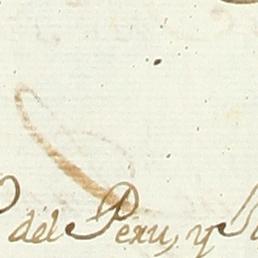 del Peru, y